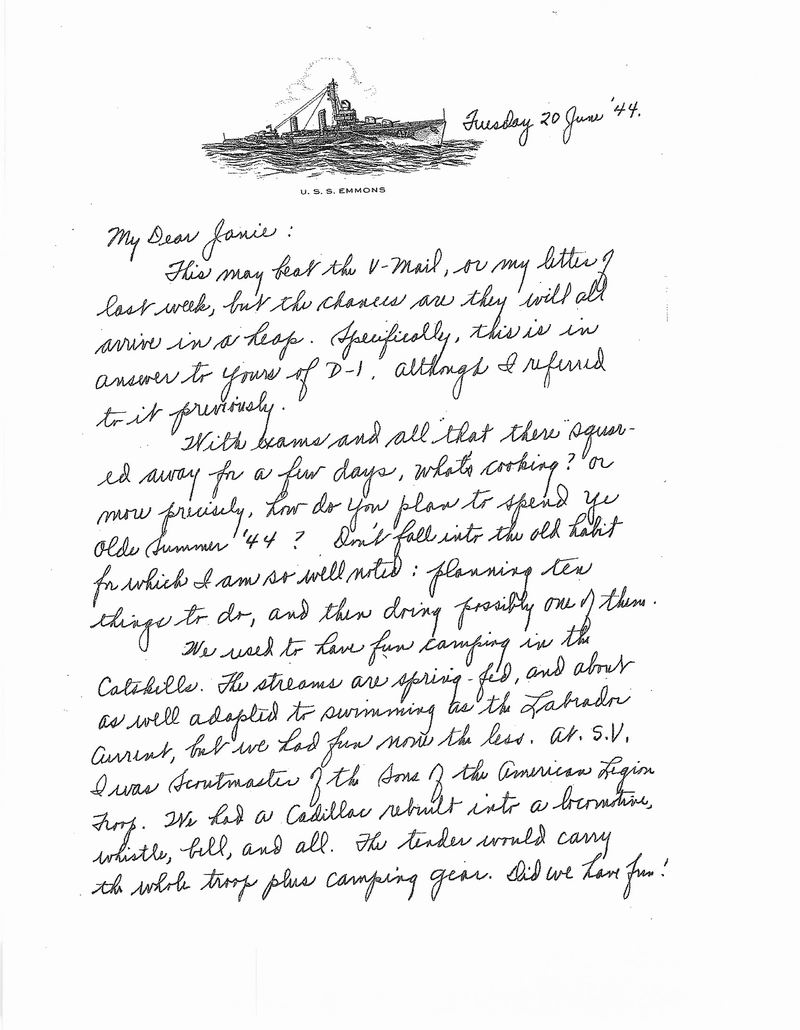 Tuesday 20 June '44.
U. S. S. EMMONS
My Dear Janie :
This may beat the V-Mail, or my letter of
last week, but the chances are they will all
arrive in a heap. Specifically, this is in
answer to yours of D-1, although I referred
to it previously.
With exams and all that there squar-
ed away for a few days, what's cooking? or
more precisely, how do you plan to spend ye
Olde Summer '44 ? Don't fall into the old habit
for which I am so well noted : planning ten
things to do, and then doing possibly one of them.
We used to have fun camping in the
Catskills. The streams are spring-fed, and about
as well adapted to swimming as the Labrador
Current, but we had fun none the less. At S.V.
I was Scoutmaster of the Sons of the American Legion
Troop. We had a Cadillac rebuilt into a locomotive,
whistle, bell, and all. The tender would carry
the whole troop plus camping gear. Did we have fun!